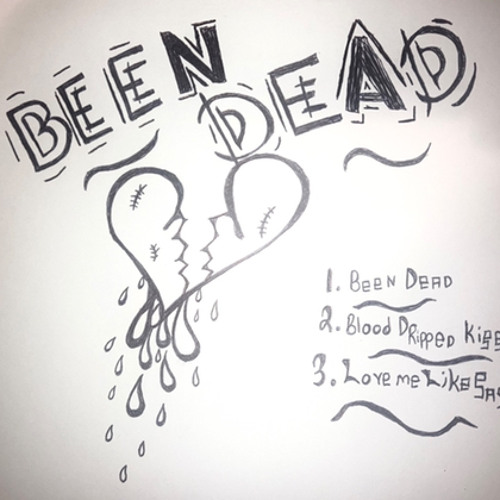 BEEN
DEAD
1. BEEN DEAD
2. Blood DRIPPED
3. Love me Like